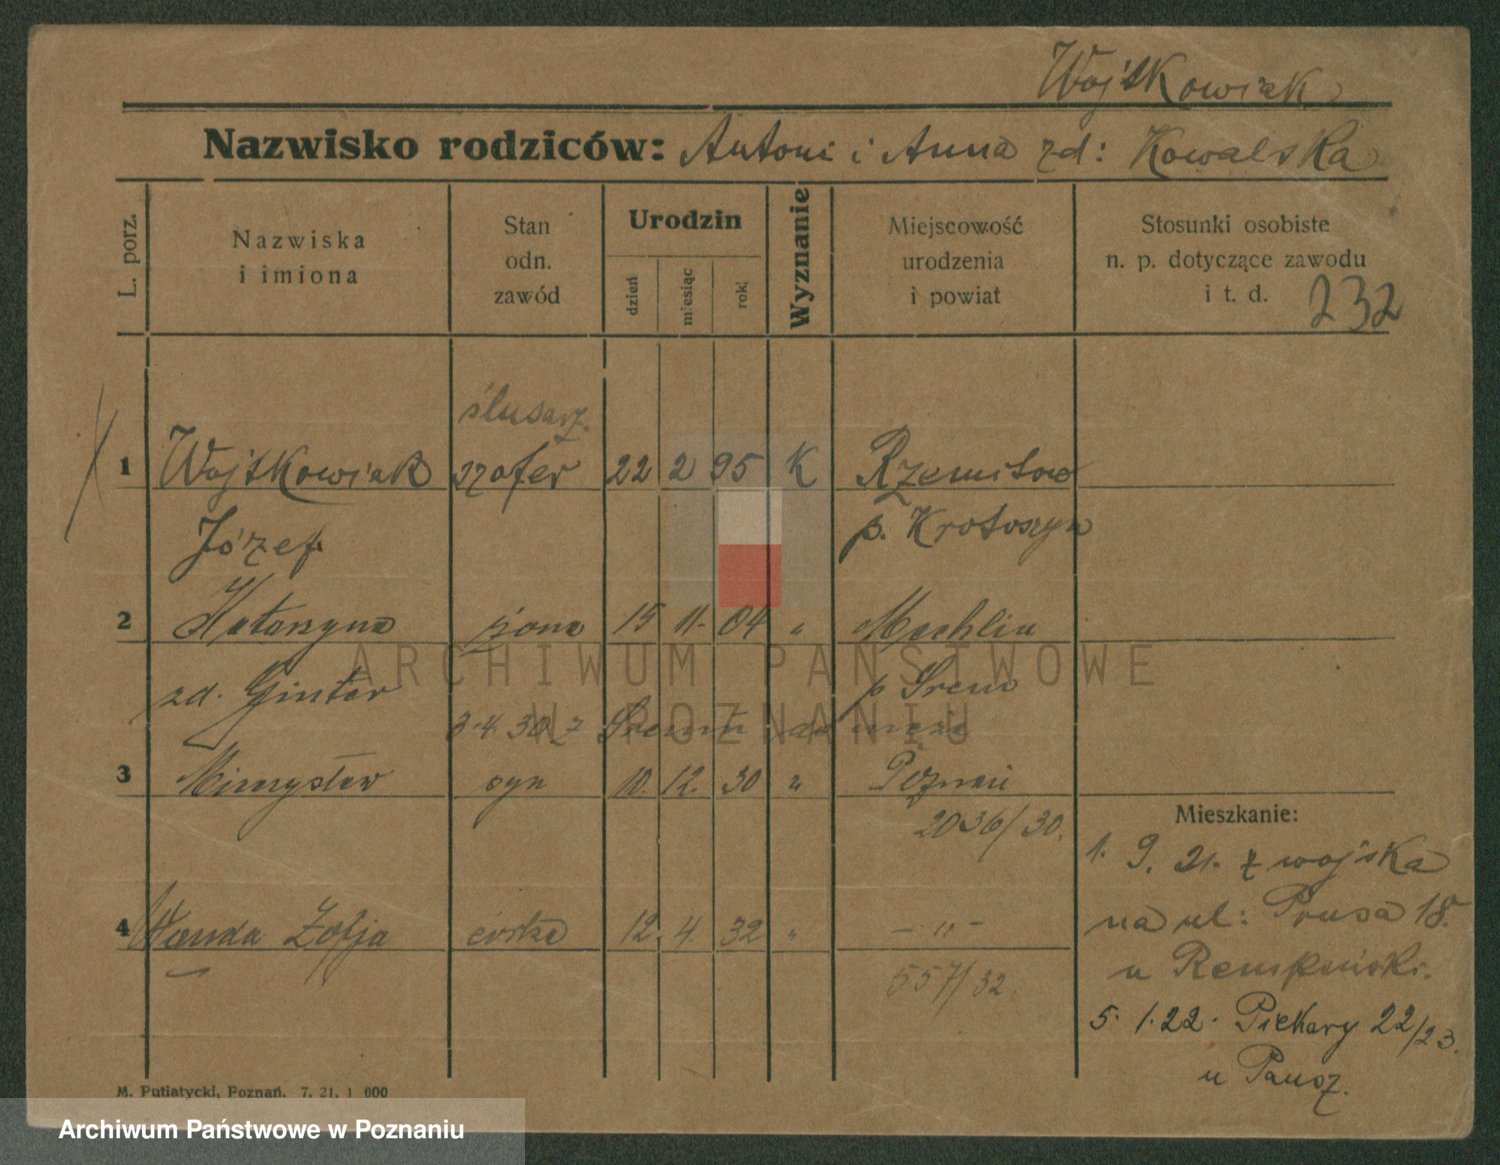 Wojtkowiak
Nazwisko rodziców: Antoni i Anna zd: Kowalska
L. porz.
Nazwiska i imiona
Stan odn. zawód
Urodzin
dzień
miesiąc
rok
Wyznanie
Miejscowość urodzenia i powiat
Stosunki osobiste n. p. dotyczące zawodu i t. d.
232
ślusarz.
1 Wojtkowiak szofer 22 2 95 K
Józef p. Krotoszyn
2 Katarzyna żona 15 11. 04 " Mechlin
zd. Ginter p Śrem
3.4.30 z Śremu do męża
3 syn 10. 12. 30 " Poznań
2036/30.
Mieszkanie:
1. 9. 21. z wojska
4 Wanda Zofja córka 12. 4. 32 " - " -
na ul: Prusa 18.
557/32.
5. 1. 22. Piekary 22/23.
M. Putiatycki, Poznań. 7. 21. 1 000
ARCHIWUM PAŃSTWOWE
W POZNANIU
Archiwum Państwowe w Poznaniu